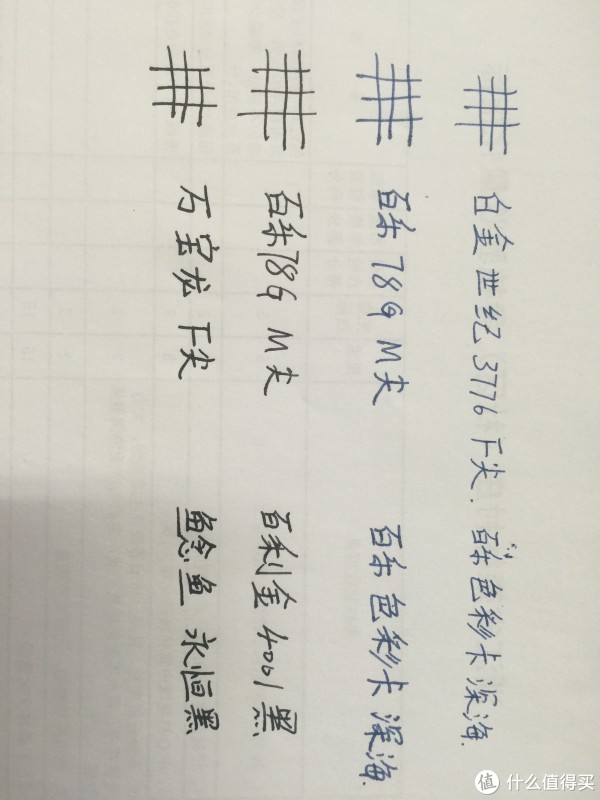 白金世纪 3776 F尖. 百乐色彩卡深海.
百乐 78G M尖 百乐色彩卡深海.
百乐78G M尖 百利金4001黑
万宝龙 F尖 鲶鱼 永恒黑
值 什么值得买